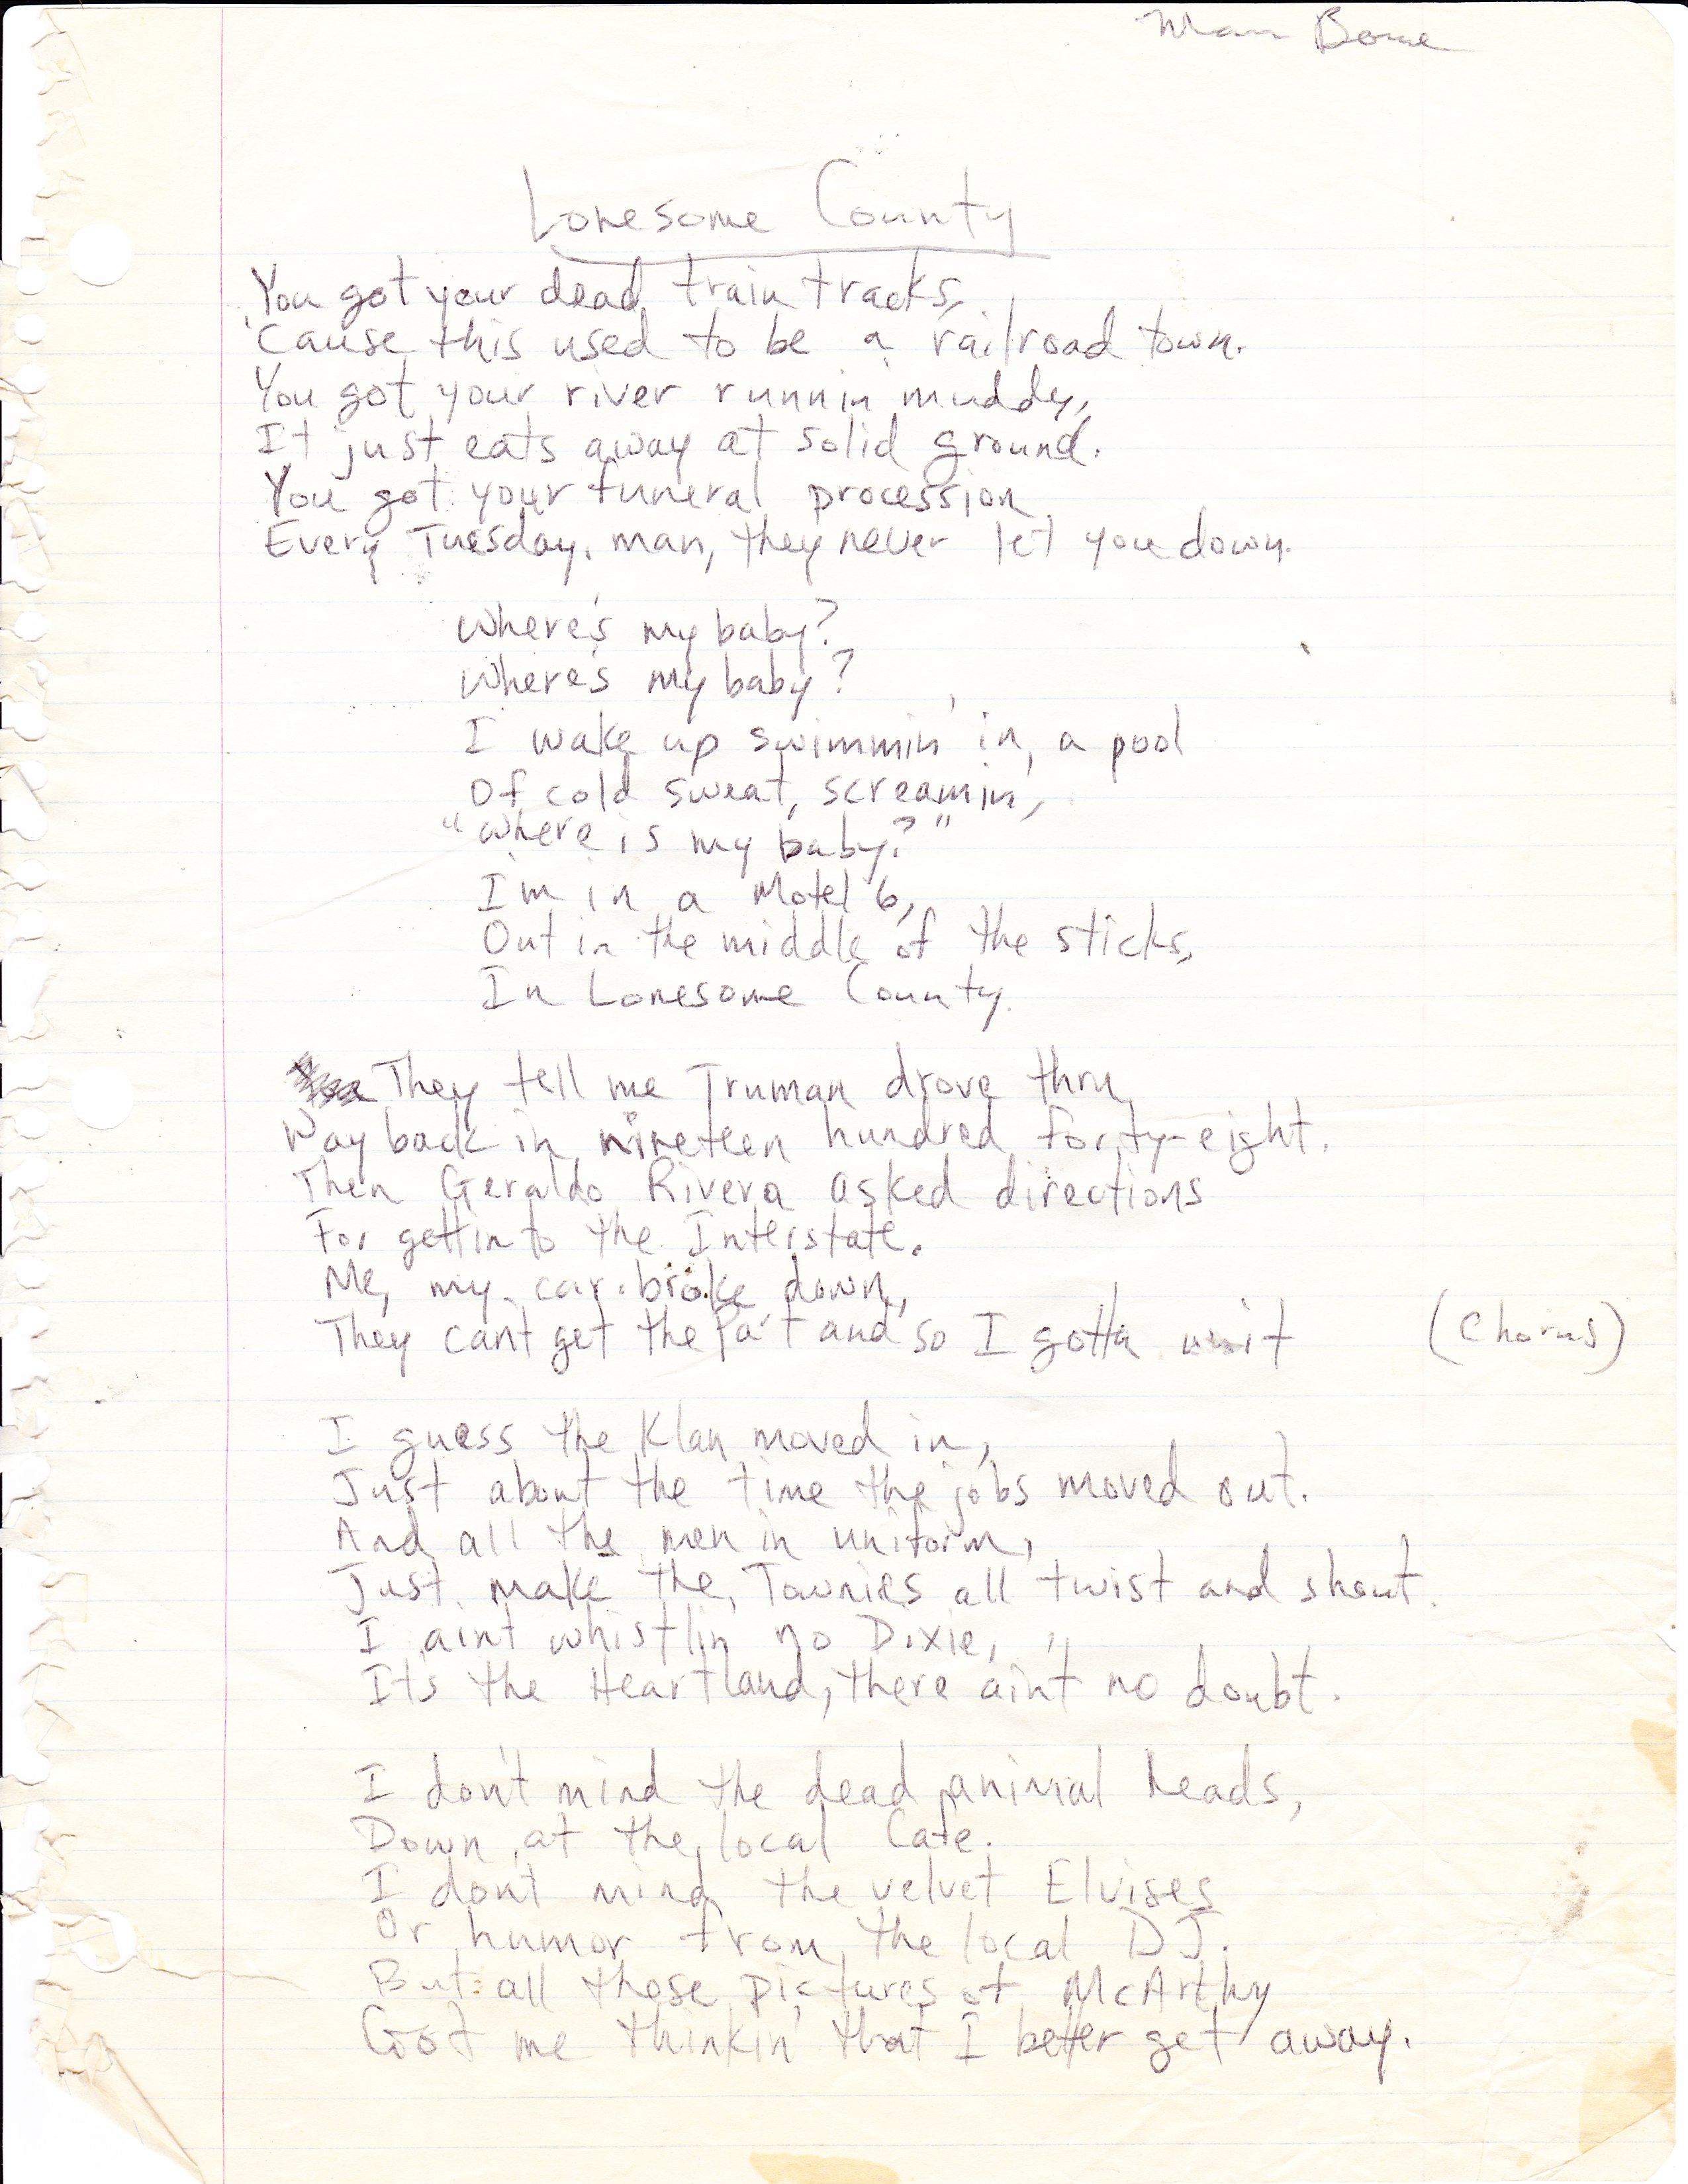 Lonesome County
You got your dead train tracks,
'Cause this used to be a railroad town.
You got your river runnin' muddy,
It just eats away at solid ground.
You got your funeral procession
Every Tuesday, man, they never let you down.
Where's my baby?
Where's my baby?
I wake up swimmin' in a pool
Of cold sweat, screamin',
"Where is my baby?"
I'm in a Motel 6,
Out in the middle of the sticks,
In Lonesome County.
They tell me Truman drove thru
Way back in nineteen hundred forty-eight.
Then Geraldo Rivera asked directions
For gettin to the Interstate.
Me, my car broke down,
They can't get the Pa't and so I gotta wait (Chorus)
I guess the Klan moved in,
Just about the time the jobs moved out.
And all the men in uniform,
Just make the Townies all twist and shout.
I ain't whistlin' no Dixie,
It's the Heartland, there ain't no doubt.
I don't mind the dead animal heads,
Down at the local Cafe.
I don't mind the velvet Elvises
Or humor from the local DJ.
But all those pictures of McArthy
Got me thinkin' that I better get away.